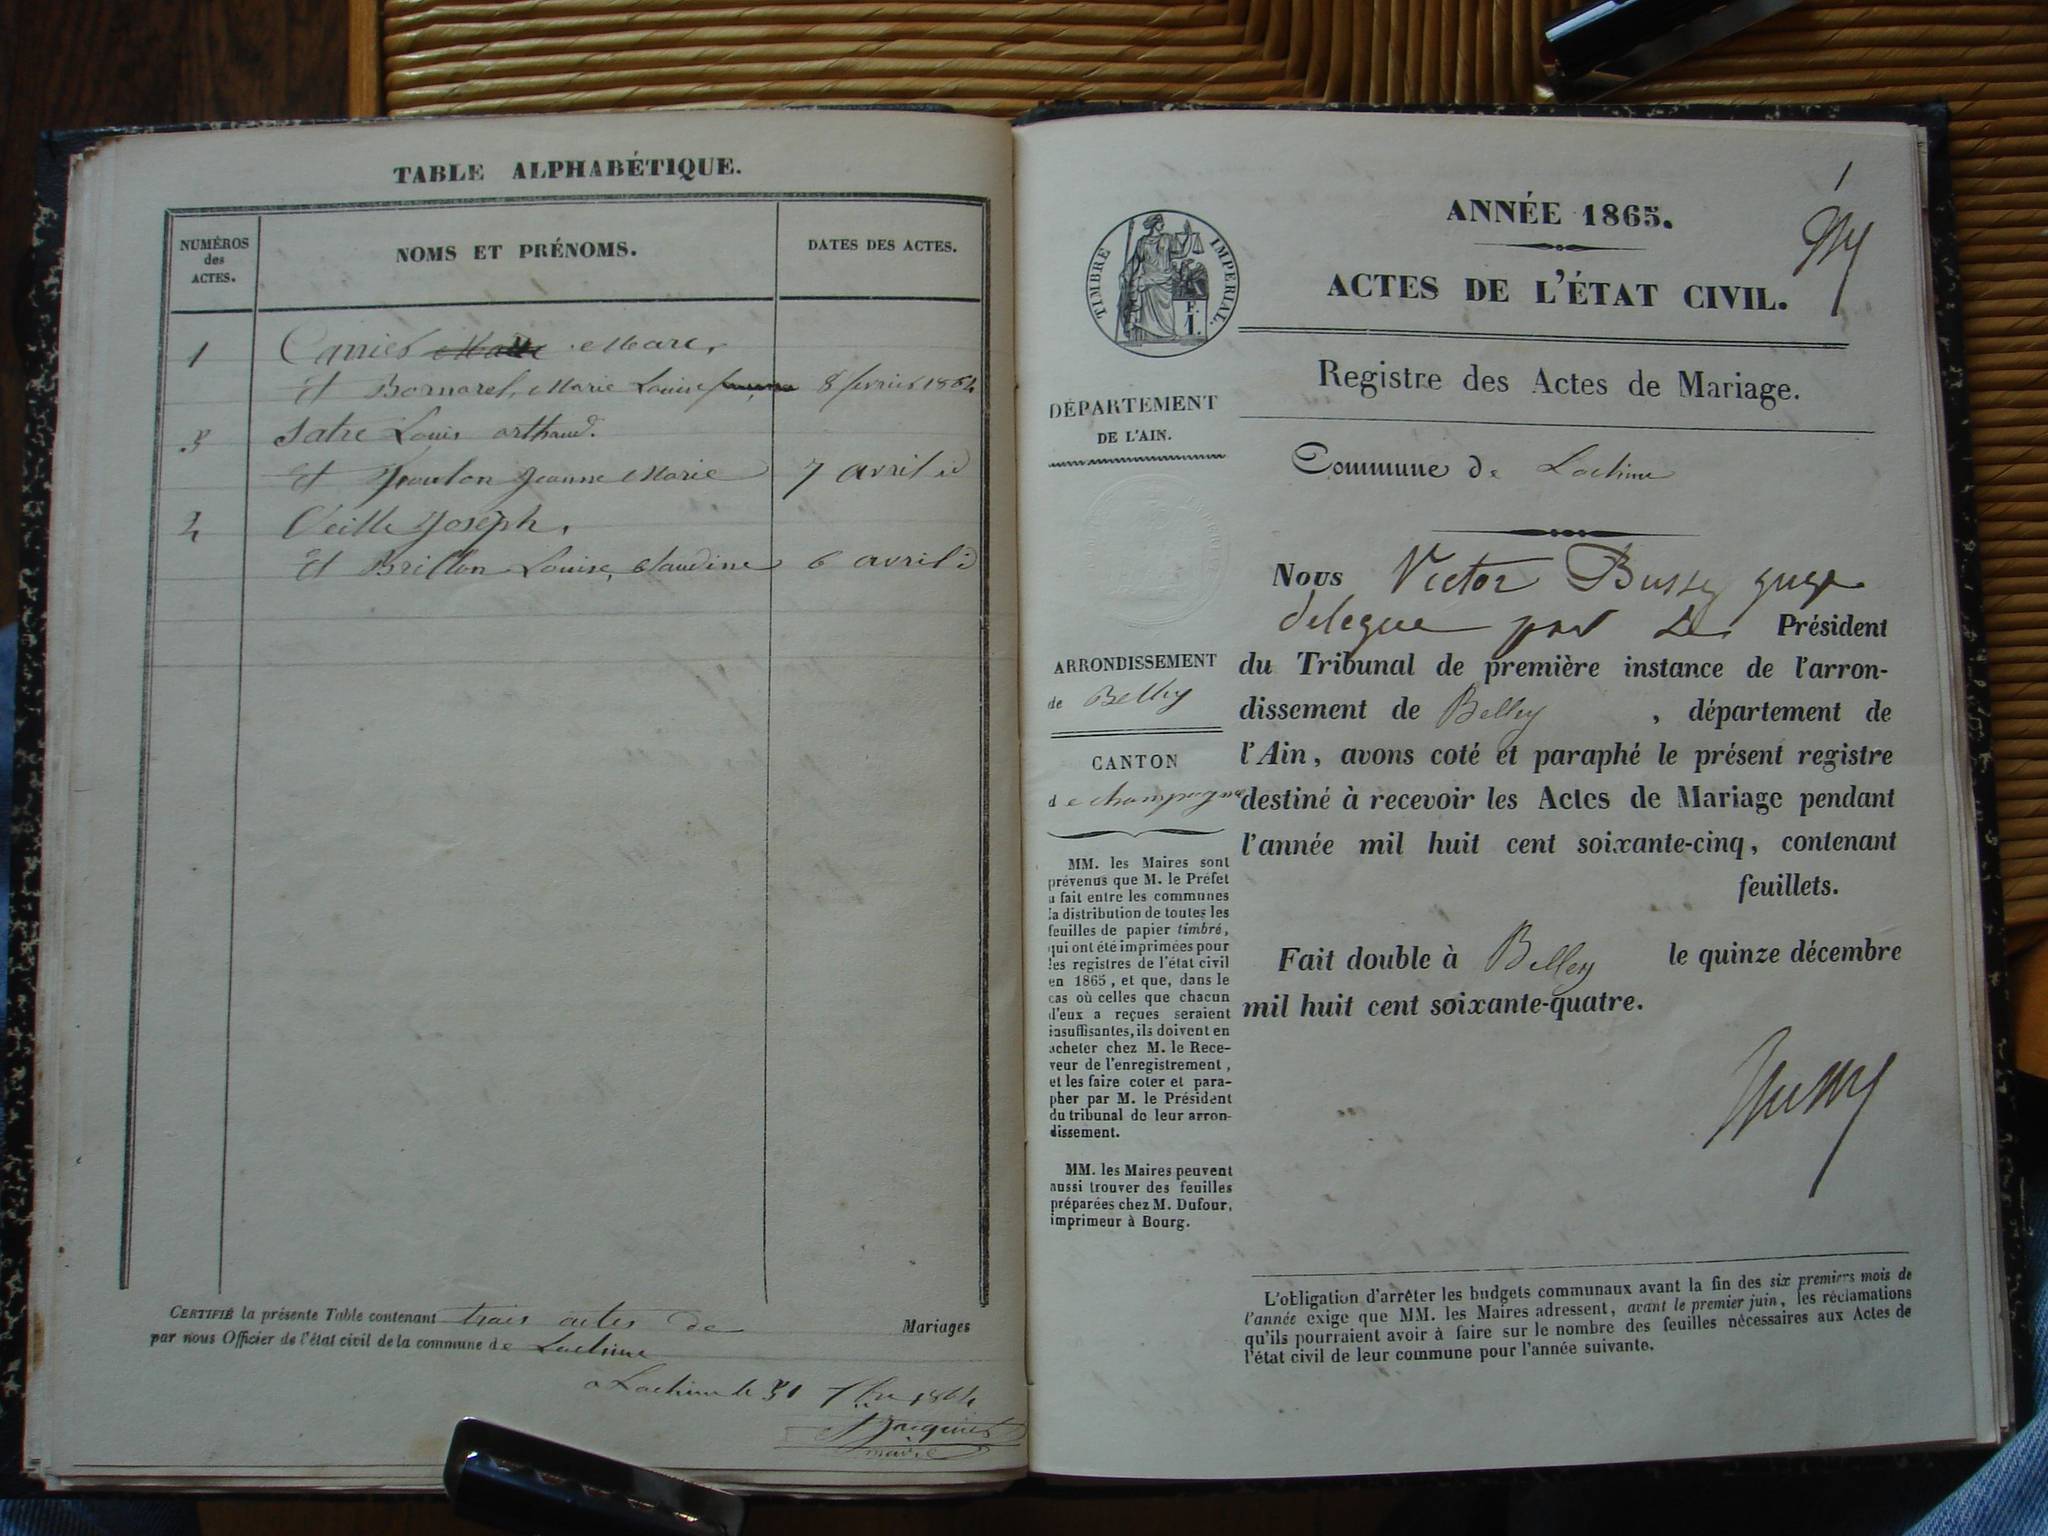 TABLE ALPHABÉTIQUE.
NUMÉROS
des
ACTES.
NOMS ET PRÉNOMS.
DATES DES ACTES.
1 Carrier Marc,
et Bornarel, Marie Louise 8 février 1864
3 Satre Louis arthaud.
et Jeanne Marie 7 avril id
2 Veille Joseph,
Et Brillon Louise, Claudine 6 avril id
CERTIFIÉ la présente Table contenant trois actes de Mariages
par nous Officier de l'état civil de la commune de Lochieu
a Lochieu le 31 1864
Jacquin
maire
1
ANNÉE 1865.
ACTES DE L'ÉTAT CIVIL.
Registre des Actes de Mariage.
Commune de Lochieu
TIMBRE IMPERIAL.
F.
1.
DÉPARTEMENT
DE L'AIN.
ARRONDISSEMENT
de Belley
CANTON
de champagne
MM. les Maires sont
prévenus que M. le Préfet
a fait entre les communes
la distribution de toutes les
feuilles de papier timbré,
qui ont été imprimées pour
les registres de l'état civil
en 1865, et que, dans le
cas où celles que chacun
d'eux a reçues seraient
insuffisantes, ils doivent en
acheter chez M. le Rece-
veur de l'enregistrement,
et les faire coter et para-
pher par M. le Président
du tribunal de leur arron-
dissement.
MM. les Maires peuvent
aussi trouver des feuilles
préparées chez M. Dufour,
imprimeur à Bourg.
Nous Victor Bussy juge
delegue par Le Président
du Tribunal de première instance de l'arron-
dissement de Belley, département de
l'Ain, avons coté et paraphé le présent registre
destiné à recevoir les Actes de Mariage pendant
l'année mil huit cent soixante-cinq, contenant
feuillets.
Fait double à Belley le quinze décembre
mil huit cent soixante-quatre.
L'obligation d'arrêter les budgets communaux avant la fin des six premiers mois de
l'année exige que MM. les Maires adressent, avant le premier juin, les réclamations
qu'ils pourraient avoir à faire sur le nombre des feuilles nécessaires aux Actes de
l'état civil de leur commune pour l'année suivante.